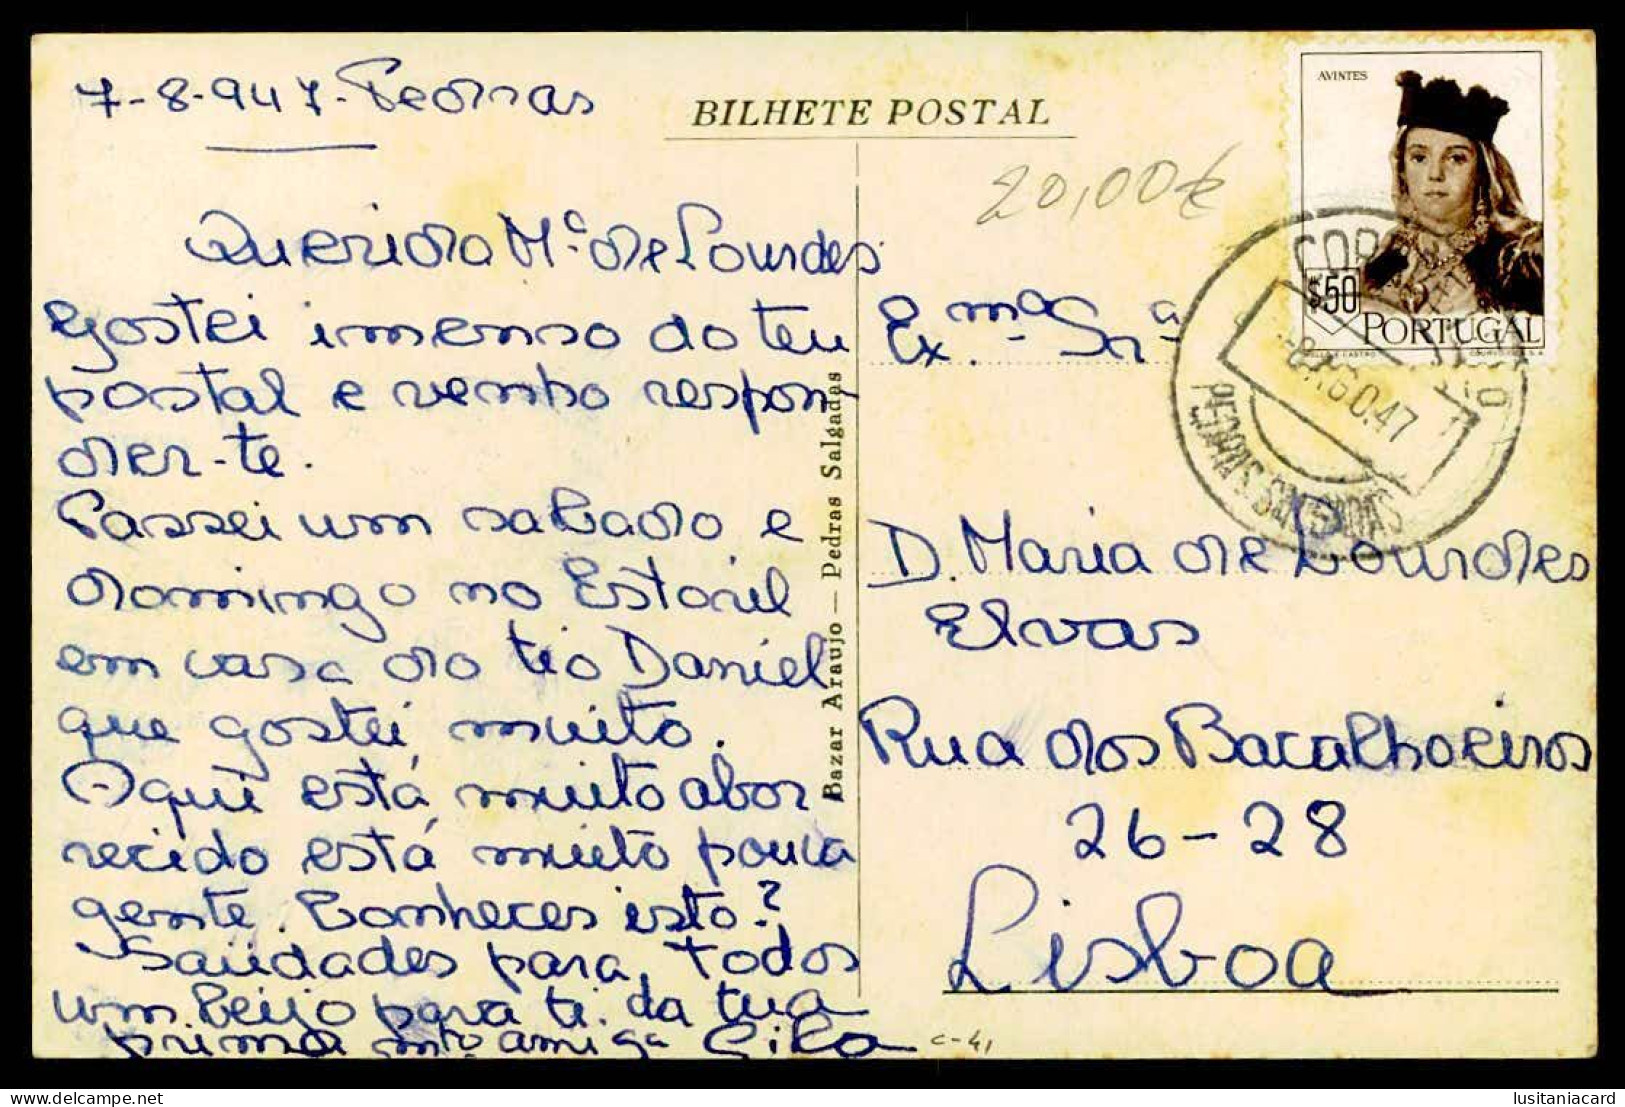 7-8-947. Pedras
BILHETE POSTAL
20,00€
Querida Mª de Lourdes
Gostei imenso do teu
postal e venho respon-
der-te.
Passei um sabado e
domingo no Estoril
em casa do tio Daniel
que gostei muito.
Aqui está muito abor-
recido está muito pouca
gente. Conheces isto?
Saüdades para todos
um beijo para ti da tua
prima mto amiga
Bazar Araujo — Pedras Salgadas
AVINTES
$50
PORTUGAL
CORREIOS
AGO.47
PEDRAS SALGADAS
Ex.ma Sr.a
D. Maria de Lourdes
Elvas
Rua dos Bacalhoeiros
26-28
Lisboa
c-41
lusitaniacard